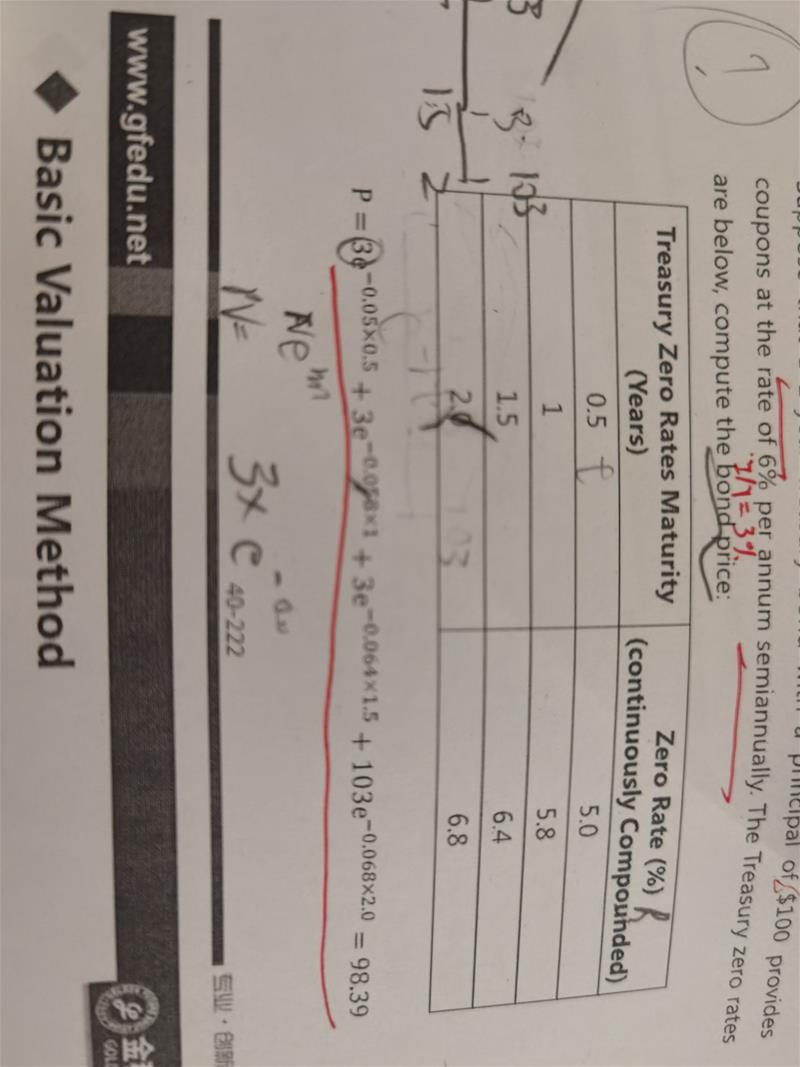 principal of $100 provides
coupons at the rate of 6% per annum semiannually. The Treasury zero rates
are below, compute the bond price:
1/1=3%
Treasury Zero Rates Maturity (Years) Zero Rate (%) R (continuously Compounded)
0.5 t 5.0
1 5.8
1.5 6.4
2.0 6.8
103
1.5 2
103
P = 3e^−0.05×0.5 + 3e^−0.058×1 + 3e^−0.064×1.5 + 103e^−0.068×2.0 = 98.39
N=
3× e
40-222
专业·创新
www.gfedu.net
金
GOL
◆ Basic Valuation Method